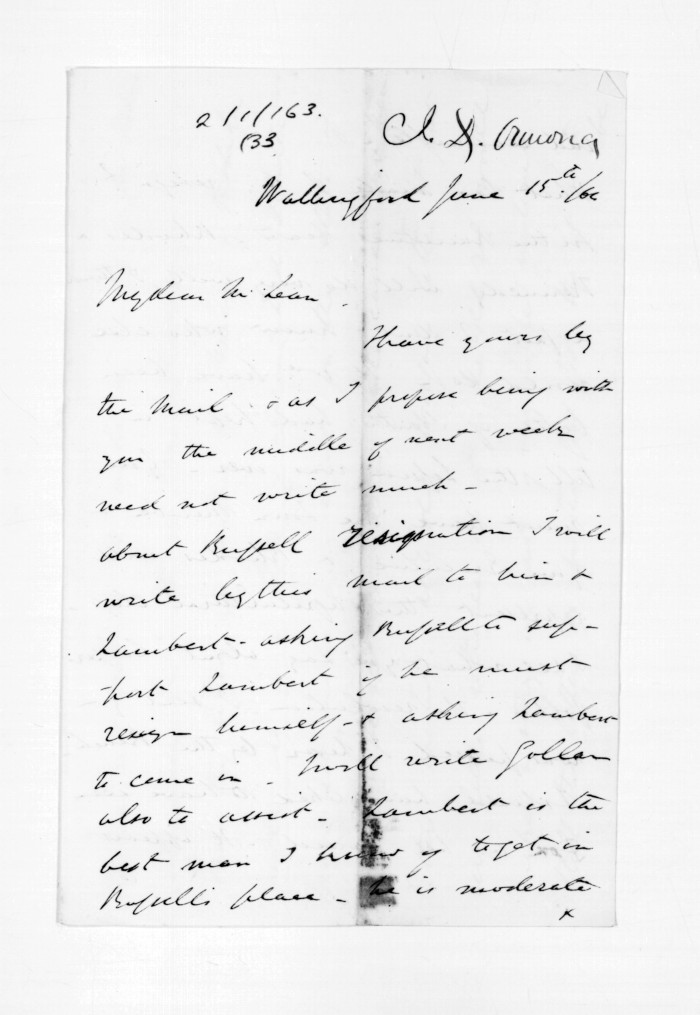 2/1/163.
J. D. Ormond
(33
Wallingford June 15th/66
My dear McLean,
I have yours by
the Mail & as I propose being with
you the middle of next week
need not write much -
about Russell resignation I will
write by this mail to him &
Lambert - asking Russell to sup-
port Lambert if he must
resign himself - & asking Lambert
to come in - I will write Gollan
also to assist - Lambert is the
best man I know of to get in
Russell's place - he is moderate
x